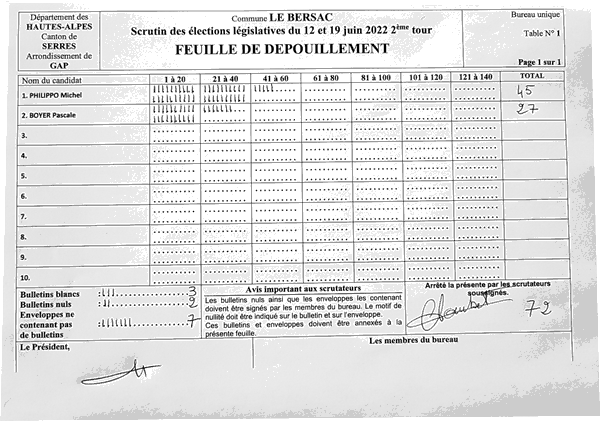 Département des
HAUTES-ALPES
Canton de
SERRES
Arrondissement de
GAP
Commune LE BERSAC
Scrutin des élections législatives du 12 et 19 juin 2022 2ème tour
FEUILLE DE DEPOUILLEMENT
Bureau unique
Table N° 1
Page 1 sur 1
Nom du candidat 1 à 20 21 à 40 41 à 60 61 à 80 81 à 100 101 à 120 121 à 140 TOTAL
1. PHILIPPO Michel 45
2. BOYER Pascale 27
3.
4.
5.
6.
7.
8.
9.
10.
Bulletins blancs 3
Bulletins nuls 2
Enveloppes ne
contenant pas 7
de bulletins
Avis important aux scrutateurs
Les bulletins nuls ainsi que les enveloppes les contenant
doivent être signés par les membres du bureau. Le motif de
nullité doit être indiqué sur le bulletin et sur l'enveloppe.
Ces bulletins et enveloppes doivent être annexés à la
présente feuille.
Arrêté la présente par les scrutateurs
soussignés.
72
Le Président,
Les membres du bureau